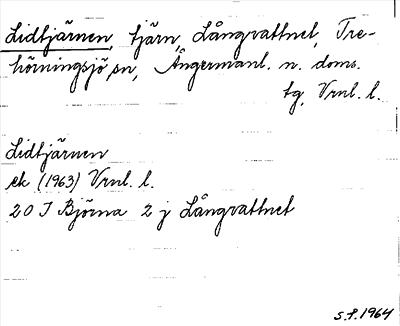 Lidtjärnen, tjärn, Långvattnet, Tre-
hörningsjö sn, Ångermanl. n. doms.
tg, Vrnl. l.
Lidtjärnen
ek (1963) Vrnl. l.
20 I Björna 2 j Långvattnet
S.F. 1964